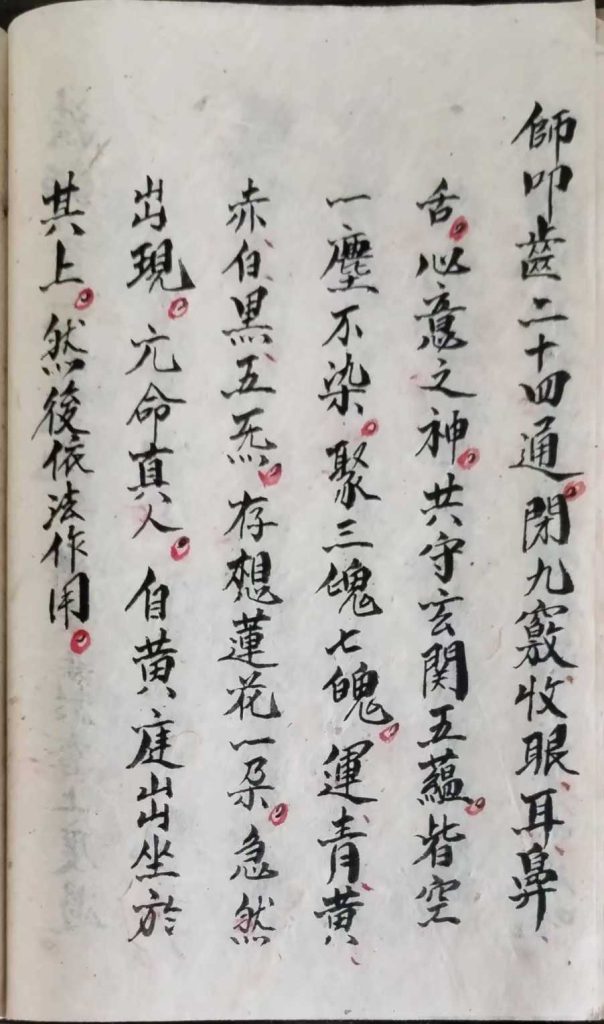 師叩齒二十四通。閉九竅收眼、耳、鼻、
舌。心意之神。共守玄関五蘊。皆空
一塵不染。聚三魂七魄。運青、黄、
赤、白、黒、五炁。存想蓮花一朶。急然
出現。亢命真人。自黄庭出坐於
其上。然後依法作用。